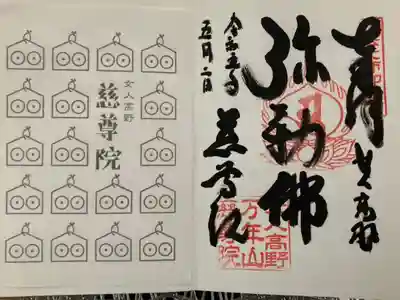 奉拝
女人高野
弥勒佛
令和五年
五月二日
慈尊院
女人高野
万年山
慈尊院
女人高野
慈尊院